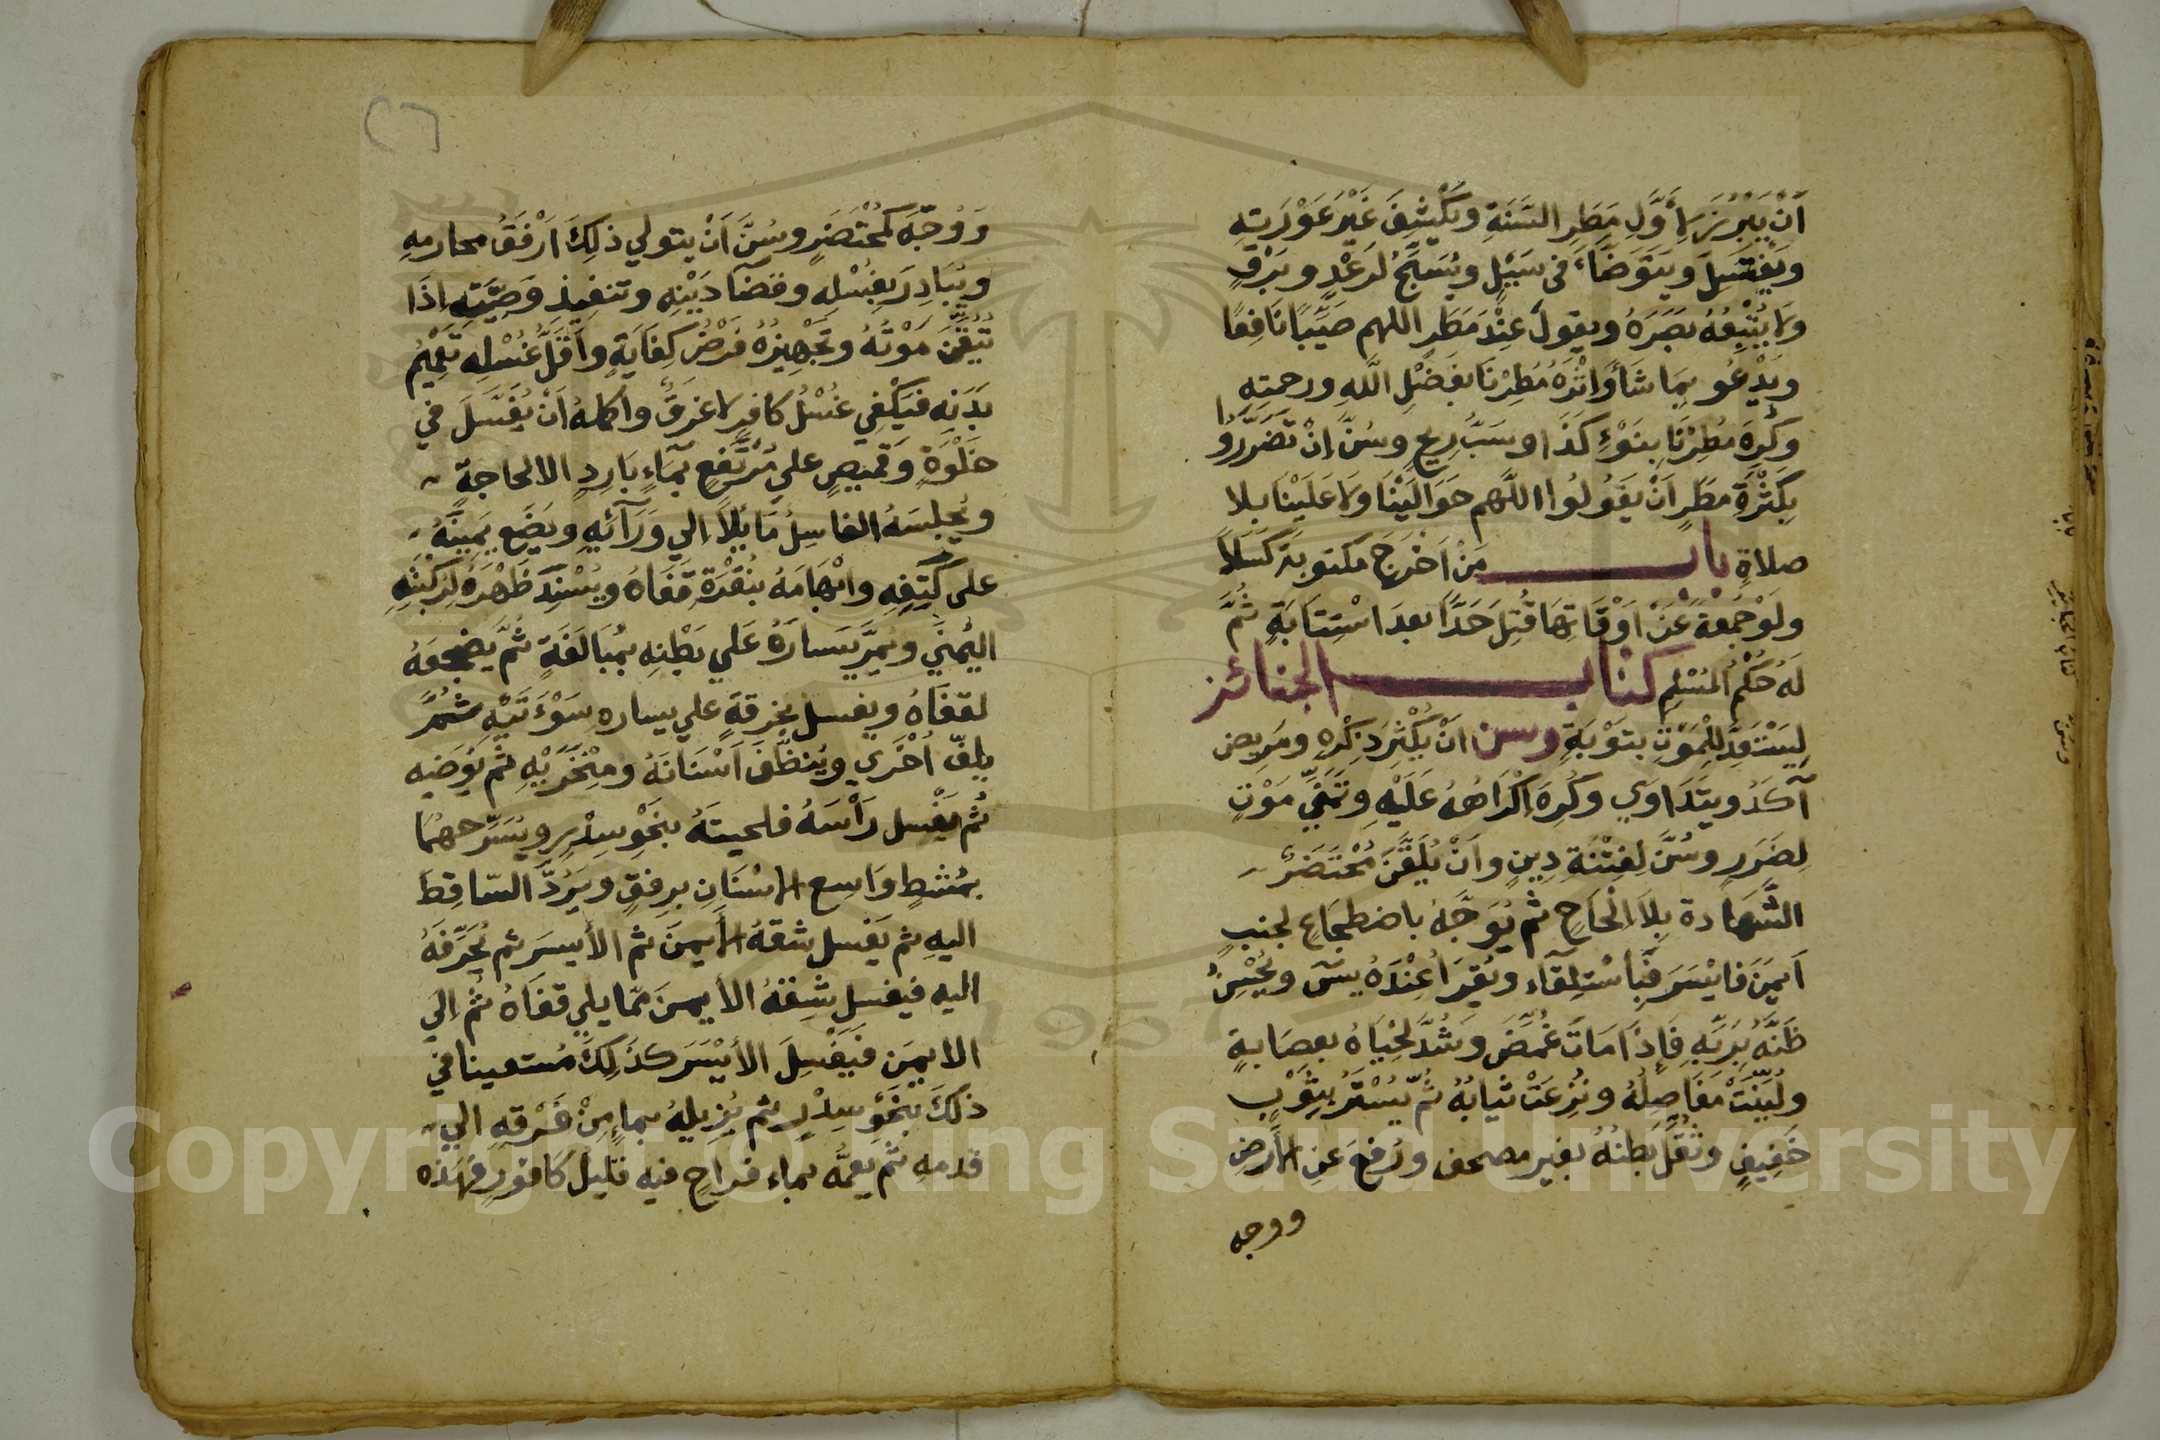 اَنْ يَبْرُزَ لِأَوَّلِ مَطَرِ السَّنَةِ وَيَكْشِفَ غَيْرَ عَوْرَتِهِ
وَيَغْتَسِلَ وَيَتَوَضَّاءَ فى سَيْلٍ وَيُسَبِّحُ لرَعْدٍ وبَرْقٍ
وَلَا يُتْبِعُهُ بَصَرَهُ ويقولُ عِنْدَ مَطَرٍ اللهم صَيِّبًا نَافِعًا
وَيَدْعُو بِمَا شَأَ وَاثْرَهُ مُطِرْنَا بفَضْلِ اللَّهِ ورحمته
وكُرِهَ مُطِرْنَا بِنَوْءِ كَذَا وسَبُّ رِيحٍ وسُنَّ اِنْ تَضَرَّرُوا
بِكَثْرَةِ مَطَرٍ اَنْ يَقُولُوا اللَّهم حَوَالَيْنَا وَلَا عَلَيْنَا بِلا
صلاةٍ باب مَنْ اَخْرَجَ مكتوبَةً كَسَلاً
ولَوْ جُمُعَةً عَنْ اَوْقَاتِهَا قُتِلَ حَدًّا بعدَ اسْتِتَابَةٍ ثُمَّ
لَهُ حُكْمُ الْمُسْلِمِ كتاب الجنائز
لِيَسْتَعِدَّ لِلْمَوْتِ بتَوْبَةٍ وسن اَنْ يُكْثِرَ ذِكْرَهِ ومَرِيض
آكَدُ ويَتَدَاوَي وكُرِهَ اِكْرَاهُهُ عَلَيْهِ وتَمَنِّي مَوْتٍ
لِضَرَرٍ وسُنَّ لِفِتْنَةِ دِينٍ وَاَنْ يُلَقَّنَ مُحْتَضَرٌ
الشَّهَادة بِلَا اِلْحَاحٍ ثم يُوَجَّهُ باضطجَاعٍ لجنبٍ
اَيمَنَ فَايْسَرَ فَبِاسْتِلْقَاء ويُقرَأُ عِنْدَهُ يسَ ويُحْسِنُ
ظَنَّهُ بِرَبِّهِ فَإِذَا مَاتَ غُمِّضَ وشُدَّ لَحْيَاهُ بعصَابةٍ
ولُيِّنَتْ مَفَاصِلُهُ ونُزِعَتْ ثيابُهُ ثُمَّ يُسْتَرُ بِثَوْبٍ
خَفِيفٍ وثُقِّلَ بَطْنُهُ بغيرِ مصحف ورُفِعَ عن الأَرضِ
ووجه
وَوُجِّهَ كمُحْتَضَرٍ وسُنَّ اَنْ يتولي ذلِكَ اَرْفَقُ محارمِهِ
ويُبَادِرَ بغُسْلِهِ وقضآ دَيْنِهِ وتنفِيذِ وَصِيَّتِهِ اِذَا
تُيُقِّنَ مَوْتُهُ وتَجْهِيزُهُ فَرْضُ كِفَايَةٍ واَقَلُّ غُسْلِهِ تَعْمِيمُ
بَدَنِهِ فيَكْفِي غُسْلُ كافرٍ لا غرَقٌ واكملهُ اَنْ يُغَسَّلَ في
خَلْوَةٍ وَقَميصٍ علي مُرْتَفِعٍ بمَآءٍ بَارِدٍ الا لحاجةٍ
ويُجلِسَهُ الغاسِلُ مَايُلاً اِلي وَرَآئِهِ ويَضَع يَمِينَهُ
على كَتِفِهِ وابْهَامَهُ بنُقْرَةِ قَفَاهُ ويُسْنِدَ ظَهْرَهُ لِرُكْبَتِهِ
اليُمنَي ويمرَّ يَسَارَهُ عَلي بَطْنِهِ بمُبَالَغَةٍ ثُمَّ يُضجِعهُ
لقفَاهُ ويغسل بخِرقَةٍ علي يساره سَوْءَتَيْهِ ثُمَّ
يلفّ اُخْرَي ويُنظِّفَ اَسْنَانَهُ ومِنْخَرَيْهِ ثم يُوَضيه
ثُم يَغْسل رَأْسَهُ فلحيتَهُ بنَحْوِ سِدْرٍ ويُسَرِّحهُمَا
بمُشطٍ وَاسِع الأسْنَانِ برِفقٍ ويَرُدَّ السّاقِطَ
اليهِ ثم يَغسل شقَهُ الأَيمنَ ثم الأيسَر ثم يُحَرِّفَهُ
اليه فيغسل شِقهُ الأيمنَ مّما يلي قفَاهُ ثُم اِلي
الايمن فيَغْسِلَ الأيْسَرَ كذَلِكَ مُستعينا في
ذلكَ بنَحْوِ سِدْرٍ ثم يُزِيلهُ بماءٍ مِنْ فَرْقِهِ الي
قدمهِ ثم يعمَّه بماء قراحٍ فيه قليلُ كَافورٍ فهَذه